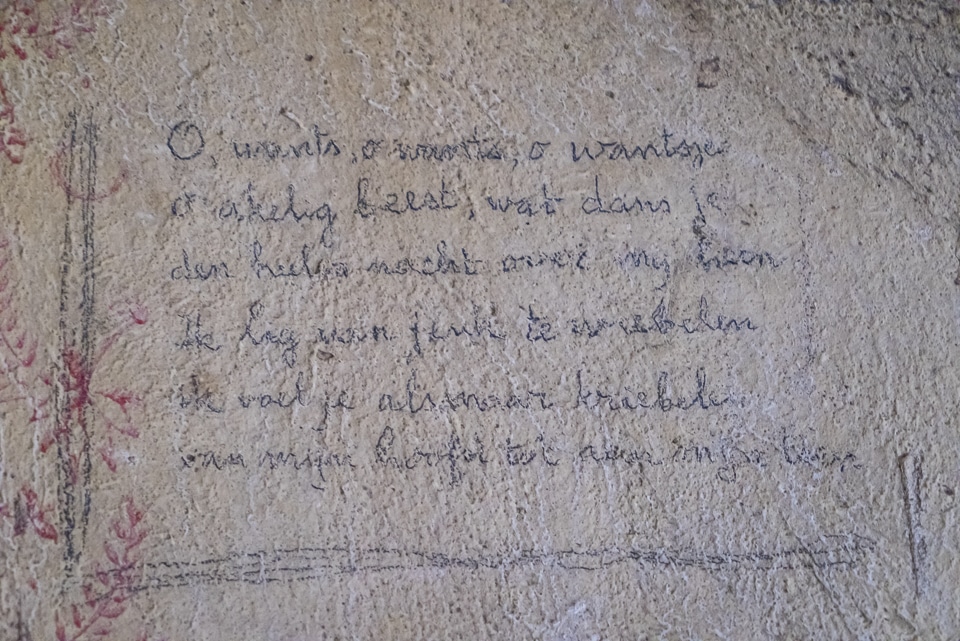 O, wants, o wants, o wantsje
O akelig beest, wat dans je
den heelen nacht over mij heen
Ik lig van jeuk te wiebelen
ik voel je alsmaar kriebelen
van mijn hoofd tot aan mijn teen